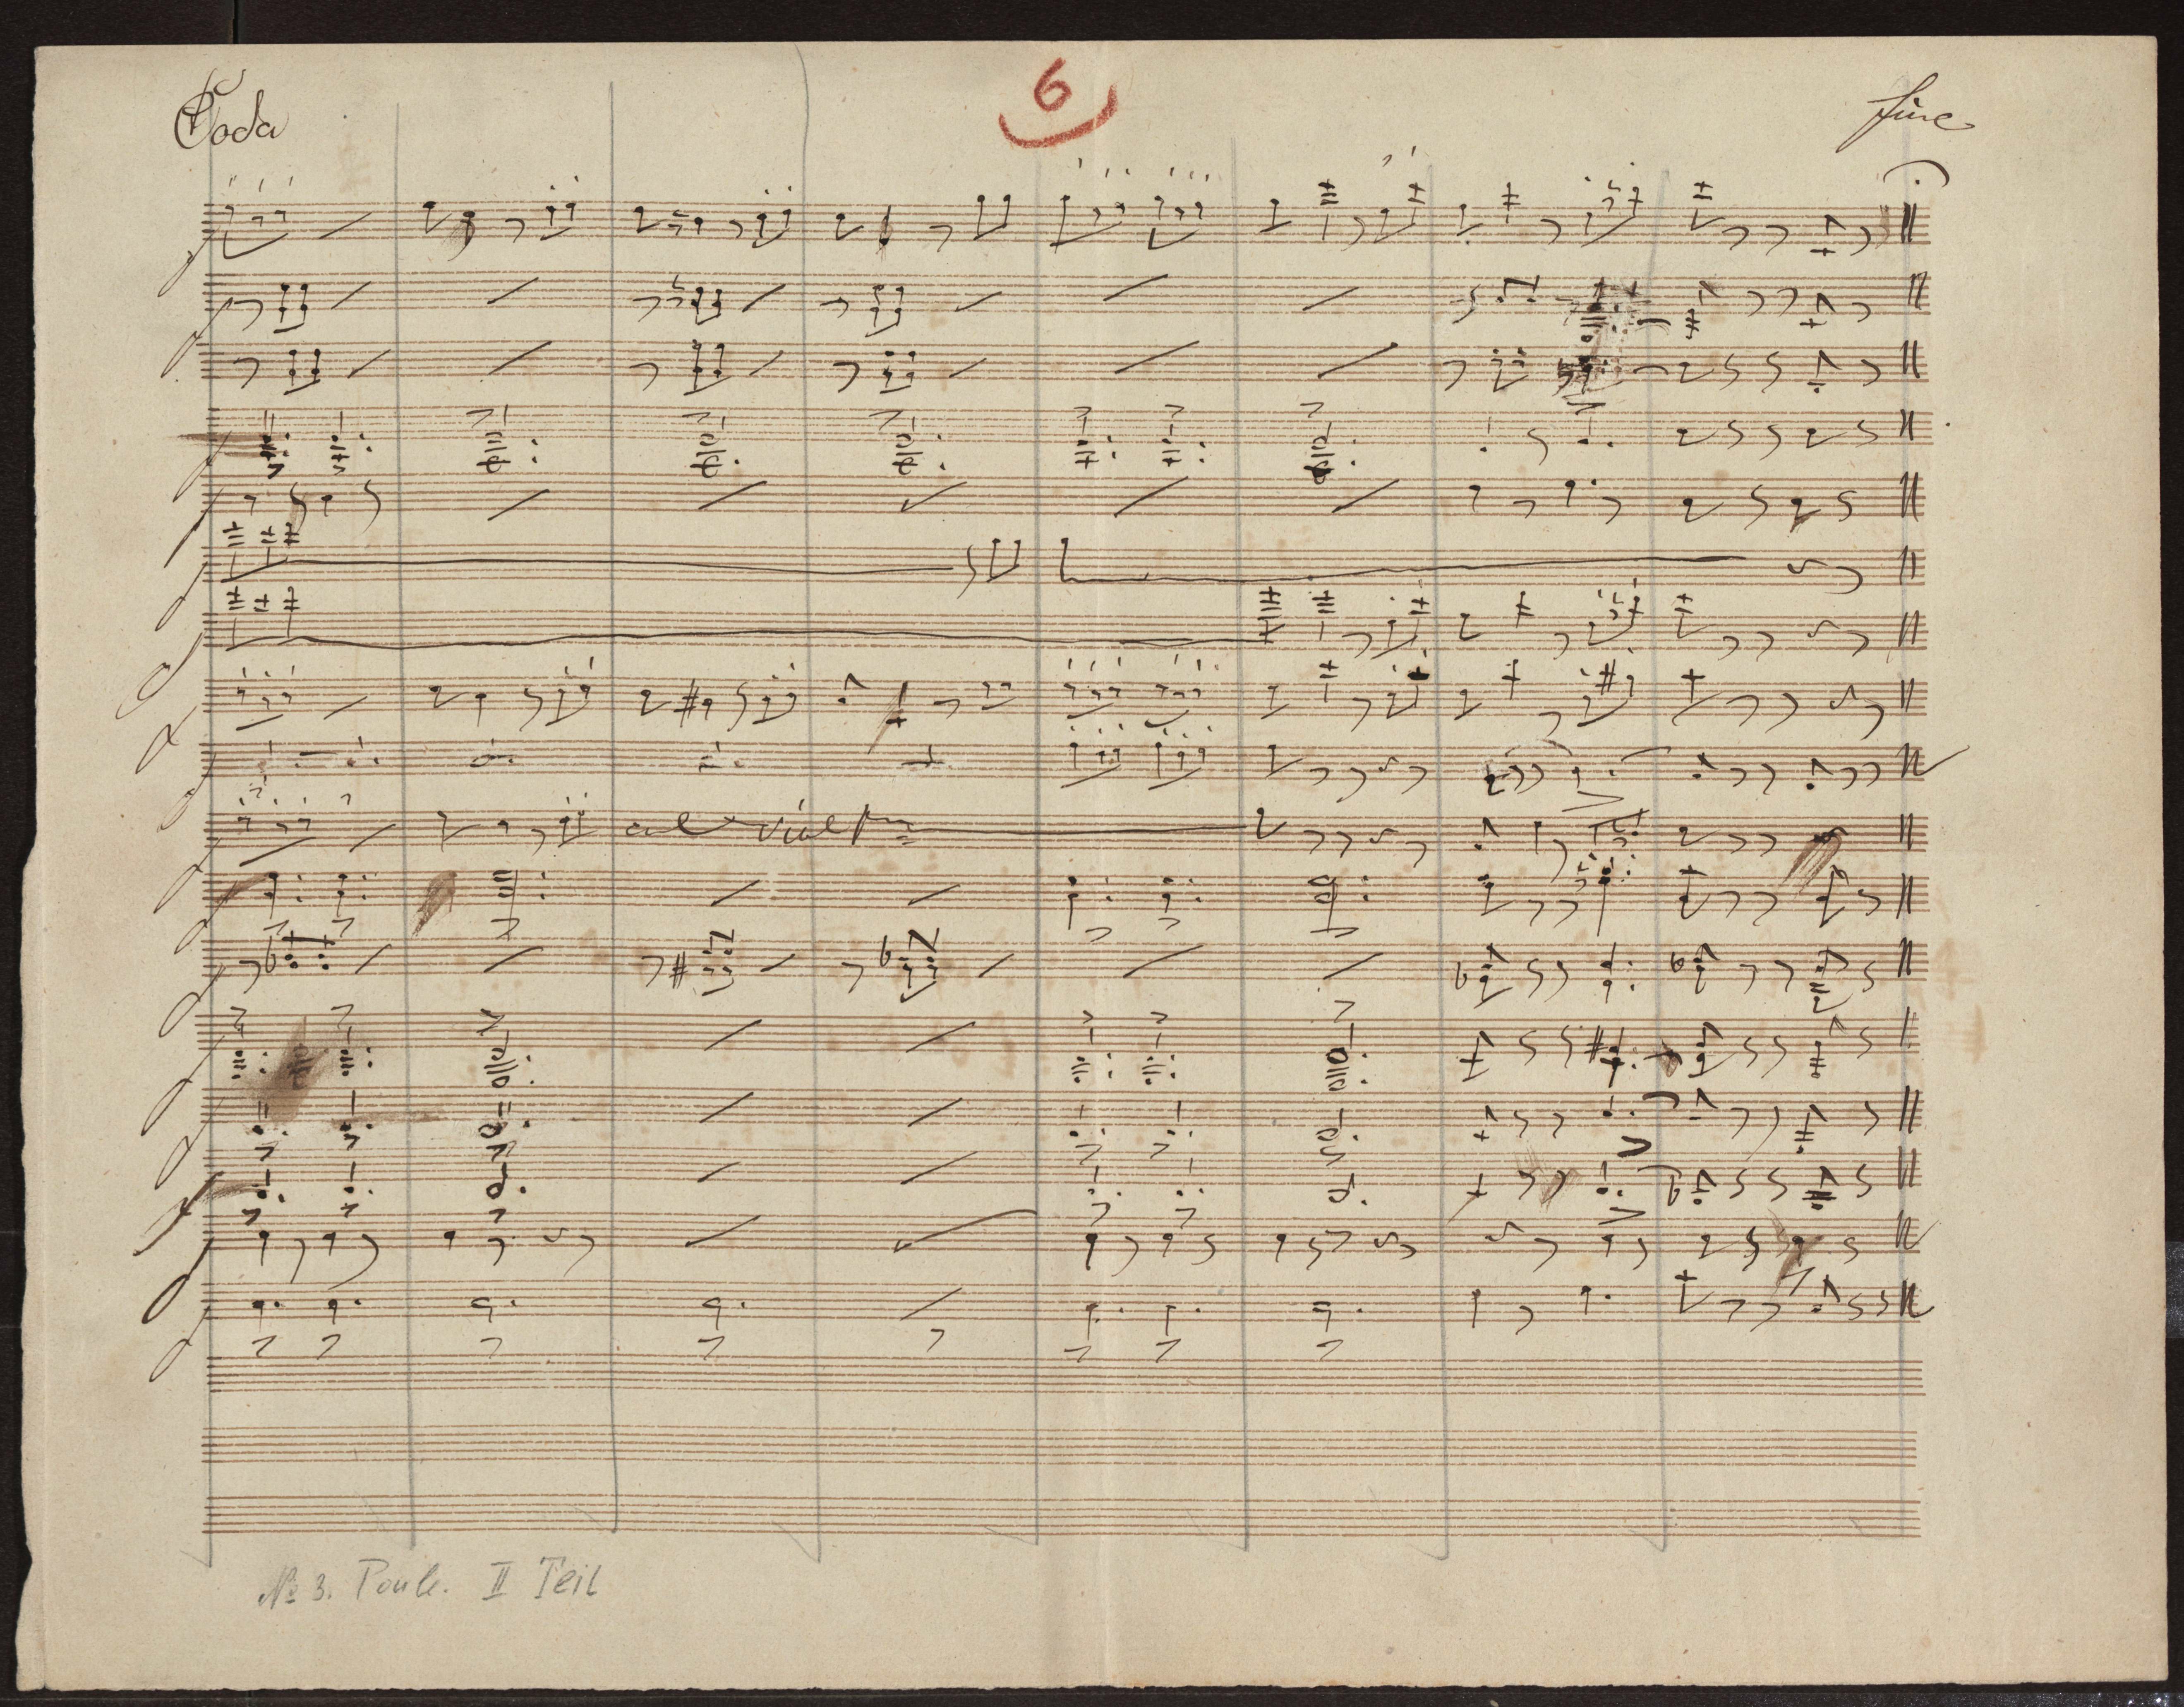 Coda
6
fine
col viol Pmo
No 3. Poule. II Teil